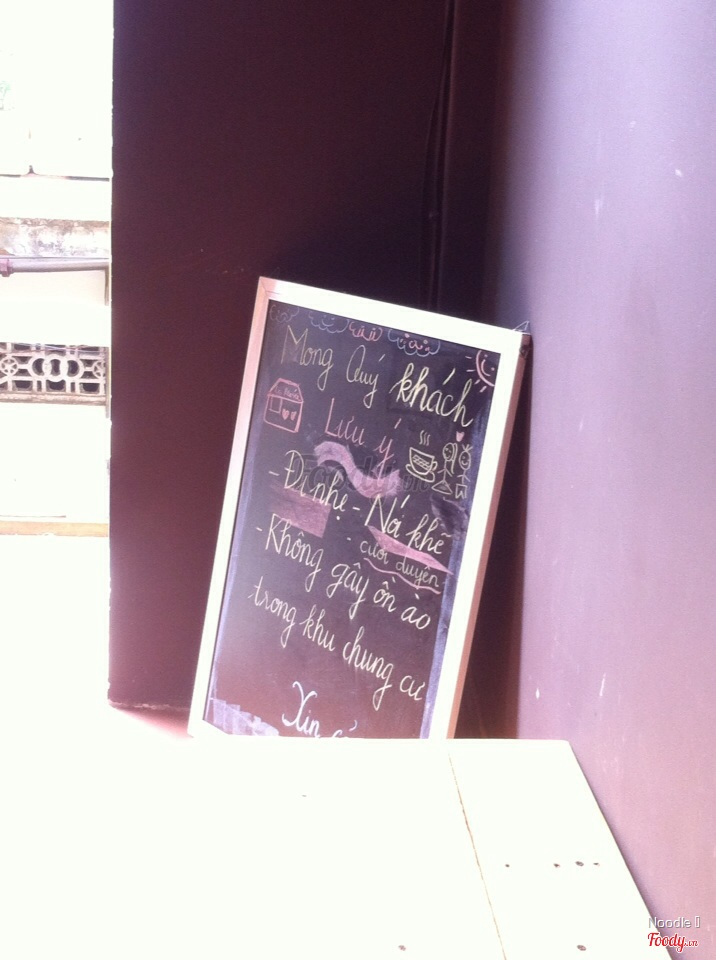 Mong Quý khách
Lưu ý
- Đi nhẹ - Nói khẽ
cười duyên
- Không gây ồn ào
trong khu chung cư
Xin
Noodle
Foody.vn